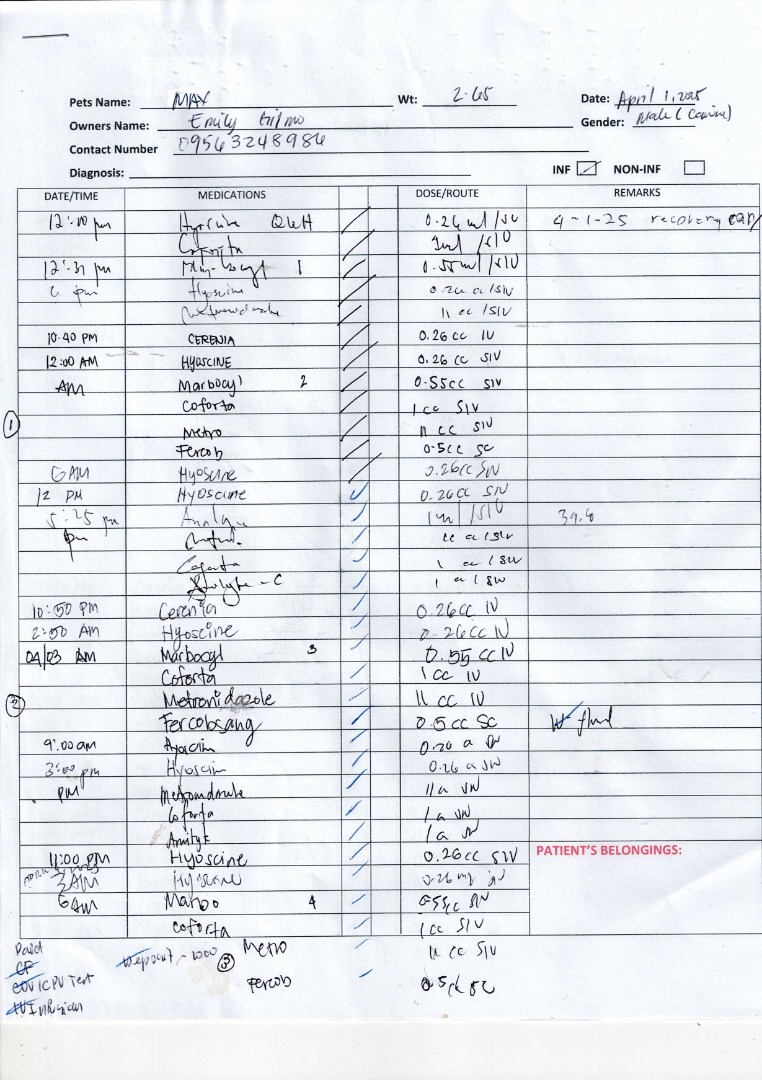 Pets Name: MAX Wt: 2.65 Date: April 1, 2025
Owners Name: Emily Gender: Male (Canine)
Contact Number 09563248986
Diagnosis: INF NON-INF
DATE/TIME MEDICATIONS DOSE/ROUTE REMARKS
12:10 pm Hyoscine Q6H 0.26 ml / SC 4-1-25 recovery
Coforta 1ml / SIV
12:31 pm 1 0.55ml / SIV
6 pm Hyoscine 0.26 cc / SIV
11 cc / SIV
10:40 PM CERENIA 0.26 cc IV
12:00 AM HYOSCINE 0.26 cc SIV
AM Marbocyl 2 0.55cc SIV
Coforta 1 cc SIV
1 Metro 11 cc SIV
Fercob 0.5cc SC
6 AM Hyoscine 0.26cc SIV
12 PM Hyoscine 0.26cc SIV
5:25 pm 1ml / SIV 39.6
pm 11 cc / SIV
Coforta 1 cc / SIV
1 cc / SIV
10:50 PM Cerenia 0.26cc IV
2:50 AM Hyoscine 0.26cc IV
04/03 AM Marbocyl 3 0.55 cc IV
Coforta 1 cc IV
2 Metronidazole 11 cc IV
Fercobsang 0.5 cc SC w/ fluid
9:00 am 0.26 cc SIV
3:00 pm Hyoscin 0.26 cc SIV
PM 11 cc SIV
Coforta 1 cc SIV
1 cc SIV
11:00 PM Hyoscine 0.26cc SIV PATIENT'S BELONGINGS:
3AM Hyoscine
6AM Marbo 4 0.55cc SIV
coforta 1 cc SIV
Paid Deposit - 1000 3 Metro 11 cc SIV
CF
CDV/CPV Test Fercob 0.5cc SC
IV Infusion